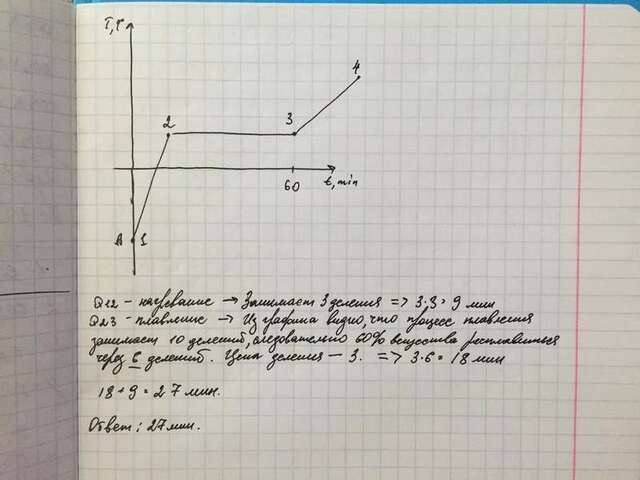 T,°C
4
2
3
60
t, min
A 1
Q12 - нагревание → Занимает 3 деления => 3·3=9 мин
Q23 - плавление → Из графика видно, что процесс плавления
занимает 10 делений, следовательно 60% вещества расплавиться
через 6 делений. Цена деления - 3. => 3·6=18 мин
18+9=27 мин.
Ответ: 27 мин.